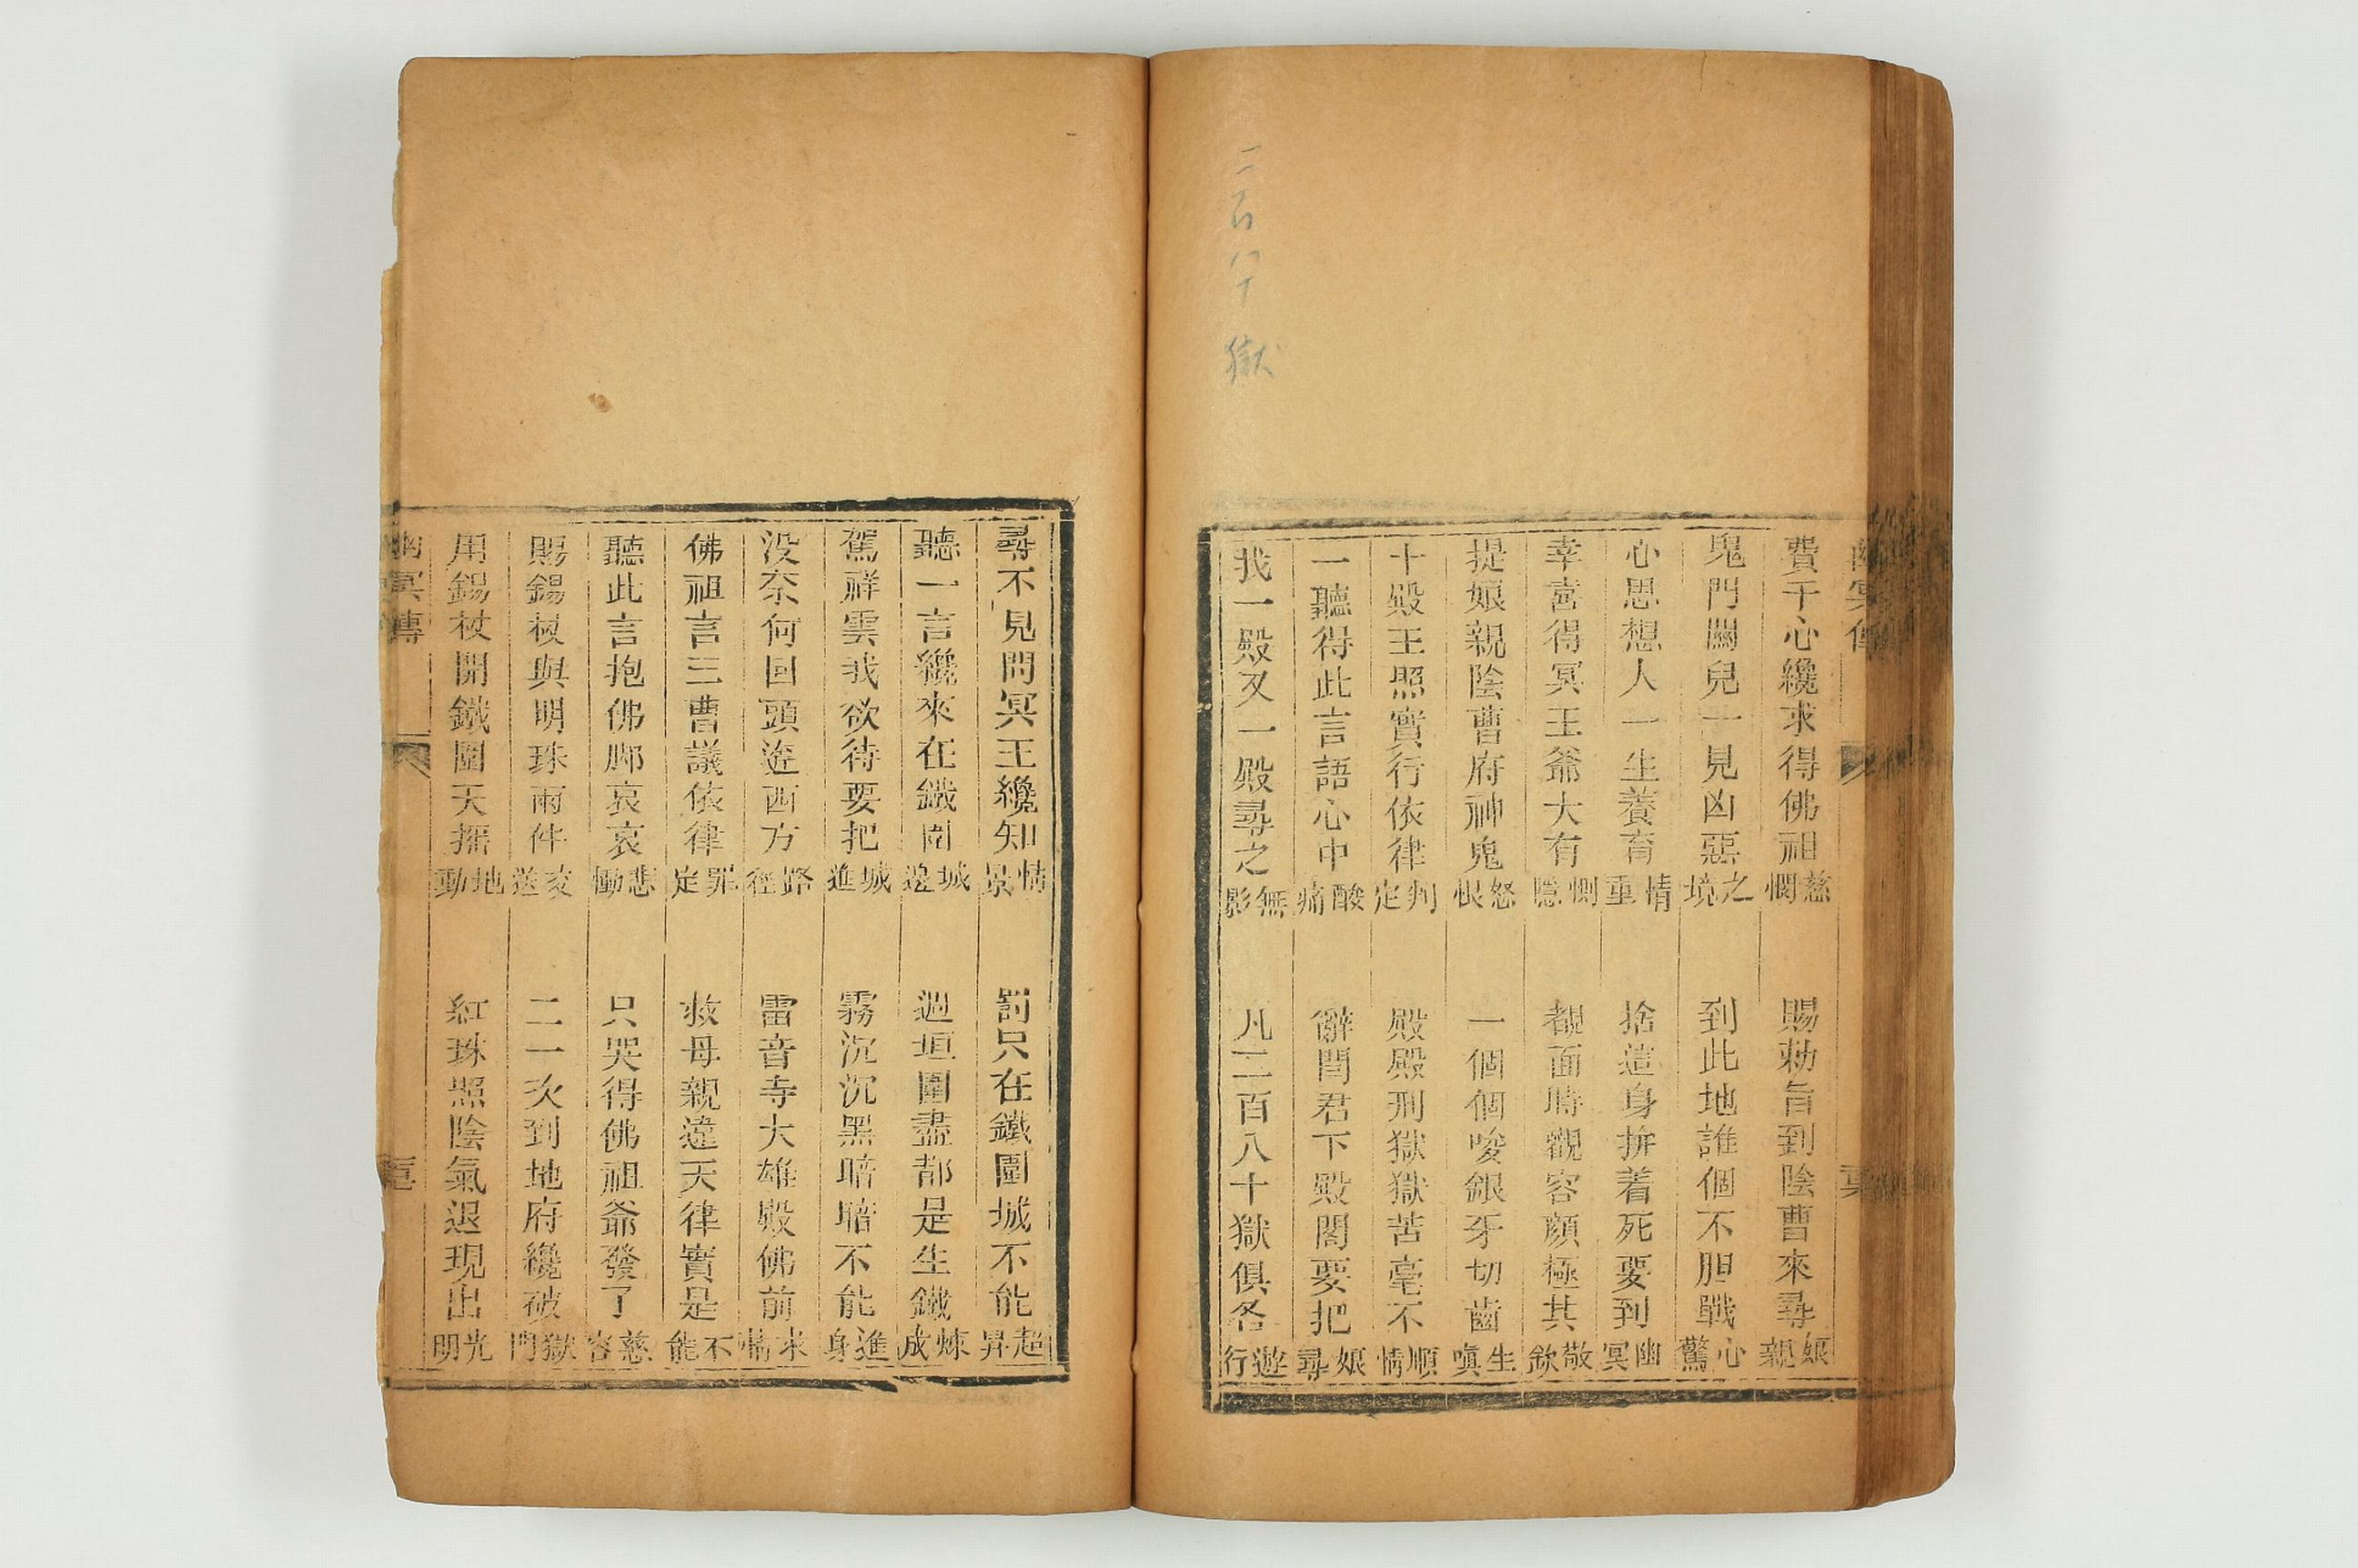 二百八十獄
幽冥傳
費千心纔求得佛祖慈憫　賜勅旨到陰曹來尋娘親
鬼門關兒一見凶惡之境　到此地誰個不胆戰心驚
心思想人一生養育情重　捨這身拚着死要到幽冥
幸喜得冥王爺大有惻隱　覩面時觀容顏極其敬欽
提娘親陰曹府神鬼怒恨　一個個咬銀牙切齒生嗔
十殿王照實行依律判定　殿殿刑獄獄苦毫不順情
一聽得此言語心中酸痛　辭閻君下殿閣要把娘尋
找一殿又一殿尋之無影　凡二百八十獄俱各遊行
尋不見問冥王纔知情景　罰只在鐵圍城不能超昇
聽一言纔來在鐵圍城邊　週垣圍盡都是生鐵煉成
駕祥雲我欲待要把城進　霧沉沉黑暗暗不能進身
没奈何回頭逛西方路徑　雷音寺大雄殿佛前求情
佛祖言三曹議依律罪定　救母親違天律實是不能
聽此言抱佛脚哀哀悲慟　只哭得佛祖爺發了慈容
賜錫杖與明珠兩件交送　二一次到地府纔破獄門
用錫杖開鐵圍天搖地動　紅珠照陰氣退現出光明
幽冥傳